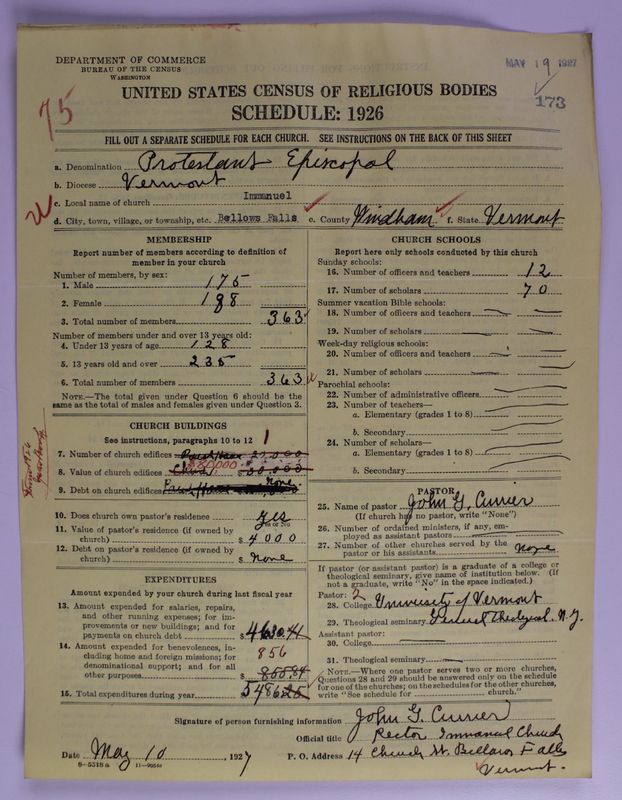 DEPARTMENT OF COMMERCE
BUREAU OF THE CENSUS
WASHINGTON
MAY 19 1927
173
75
UNITED STATES CENSUS OF RELIGIOUS BODIES
SCHEDULE: 1926
FILL OUT A SEPARATE SCHEDULE FOR EACH CHURCH. SEE INSTRUCTIONS ON THE BACK OF THIS SHEET
a. Denomination Protestant Episcopal
b. Diocese Vermont
c. Local name of church Immanuel
d. City, town, village, or township, etc. Bellows Falls e. County Windham f. State Vermont
MEMBERSHIP
Report number of members according to definition of
member in your church
Number of members, by sex:
1. Male 175
2. Female 188
3. Total number of members 363
Number of members under and over 13 years old:
4. Under 13 years of age 128
5. 13 years old and over 235
6. Total number of members 363
NOTE.—The total given under Question 6 should be
same as the total of males and females given under Question 3.
CHURCH BUILDINGS
See instructions, paragraphs 10 to 12
7. Number of church edifices 1
8. Value of church edifices $
9. Debt on church edifices none
10. Does church own pastor's residence yes
Yes or No
11. Value of pastor's residence (if owned by
church) $ 4000
12. Debt on pastor's residence (if owned by
church) $ none
EXPENDITURES
Amount expended by your church during last fiscal year
13. Amount expended for salaries, repairs,
and other running expenses; for im-
provements or new buildings; and for
payments on church debt $ 4630.41
14. Amount expended for benevolences, in-
cluding home and foreign missions; for
denominational support; and for all
other purposes $ 855.84
856
15. Total expenditures during year 5486.25
CHURCH SCHOOLS
Report here only schools conducted by this church
Sunday schools:
16. Number of officers and teachers 12
17. Number of scholars 70
Summer vacation Bible schools:
18. Number of officers and teachers
19. Number of scholars
Week-day religious schools:
20. Number of officers and teachers
21. Number of scholars
Parochial schools:
22. Number of administrative officers
23. Number of teachers—
a. Elementary (grades 1 to 8)
b. Secondary
24. Number of scholars—
a. Elementary (grades 1 to 8)
b. Secondary
PASTOR
25. Name of pastor John G. Currier
(If church has no pastor, write "None")
26. Number of ordained ministers, if any, em-
ployed as assistant pastors
27. Number of other churches served by the
pastor or his assistants none
If pastor (or assistant pastor) is a graduate of a college or
theological seminary, give name of institution below. (If
not a graduate, write "No" in the space indicated.)
Pastor: 2
28. College University of Vermont
29. Theological seminary General Theological. N.Y.
Assistant pastor:
30. College
31. Theological seminary
NOTE.—Where one pastor serves two or more churches,
Questions 28 and 29 should be answered only on the schedule
for one of the churches; on the schedules for the other churches,
write "See schedule for church."
Signature of person furnishing information John G. Currier
Official title Rector Immanuel Church
Date May 10, 1927 P. O. Address 14 Church St. Bellows Falls
Vermont.
8-5318 a